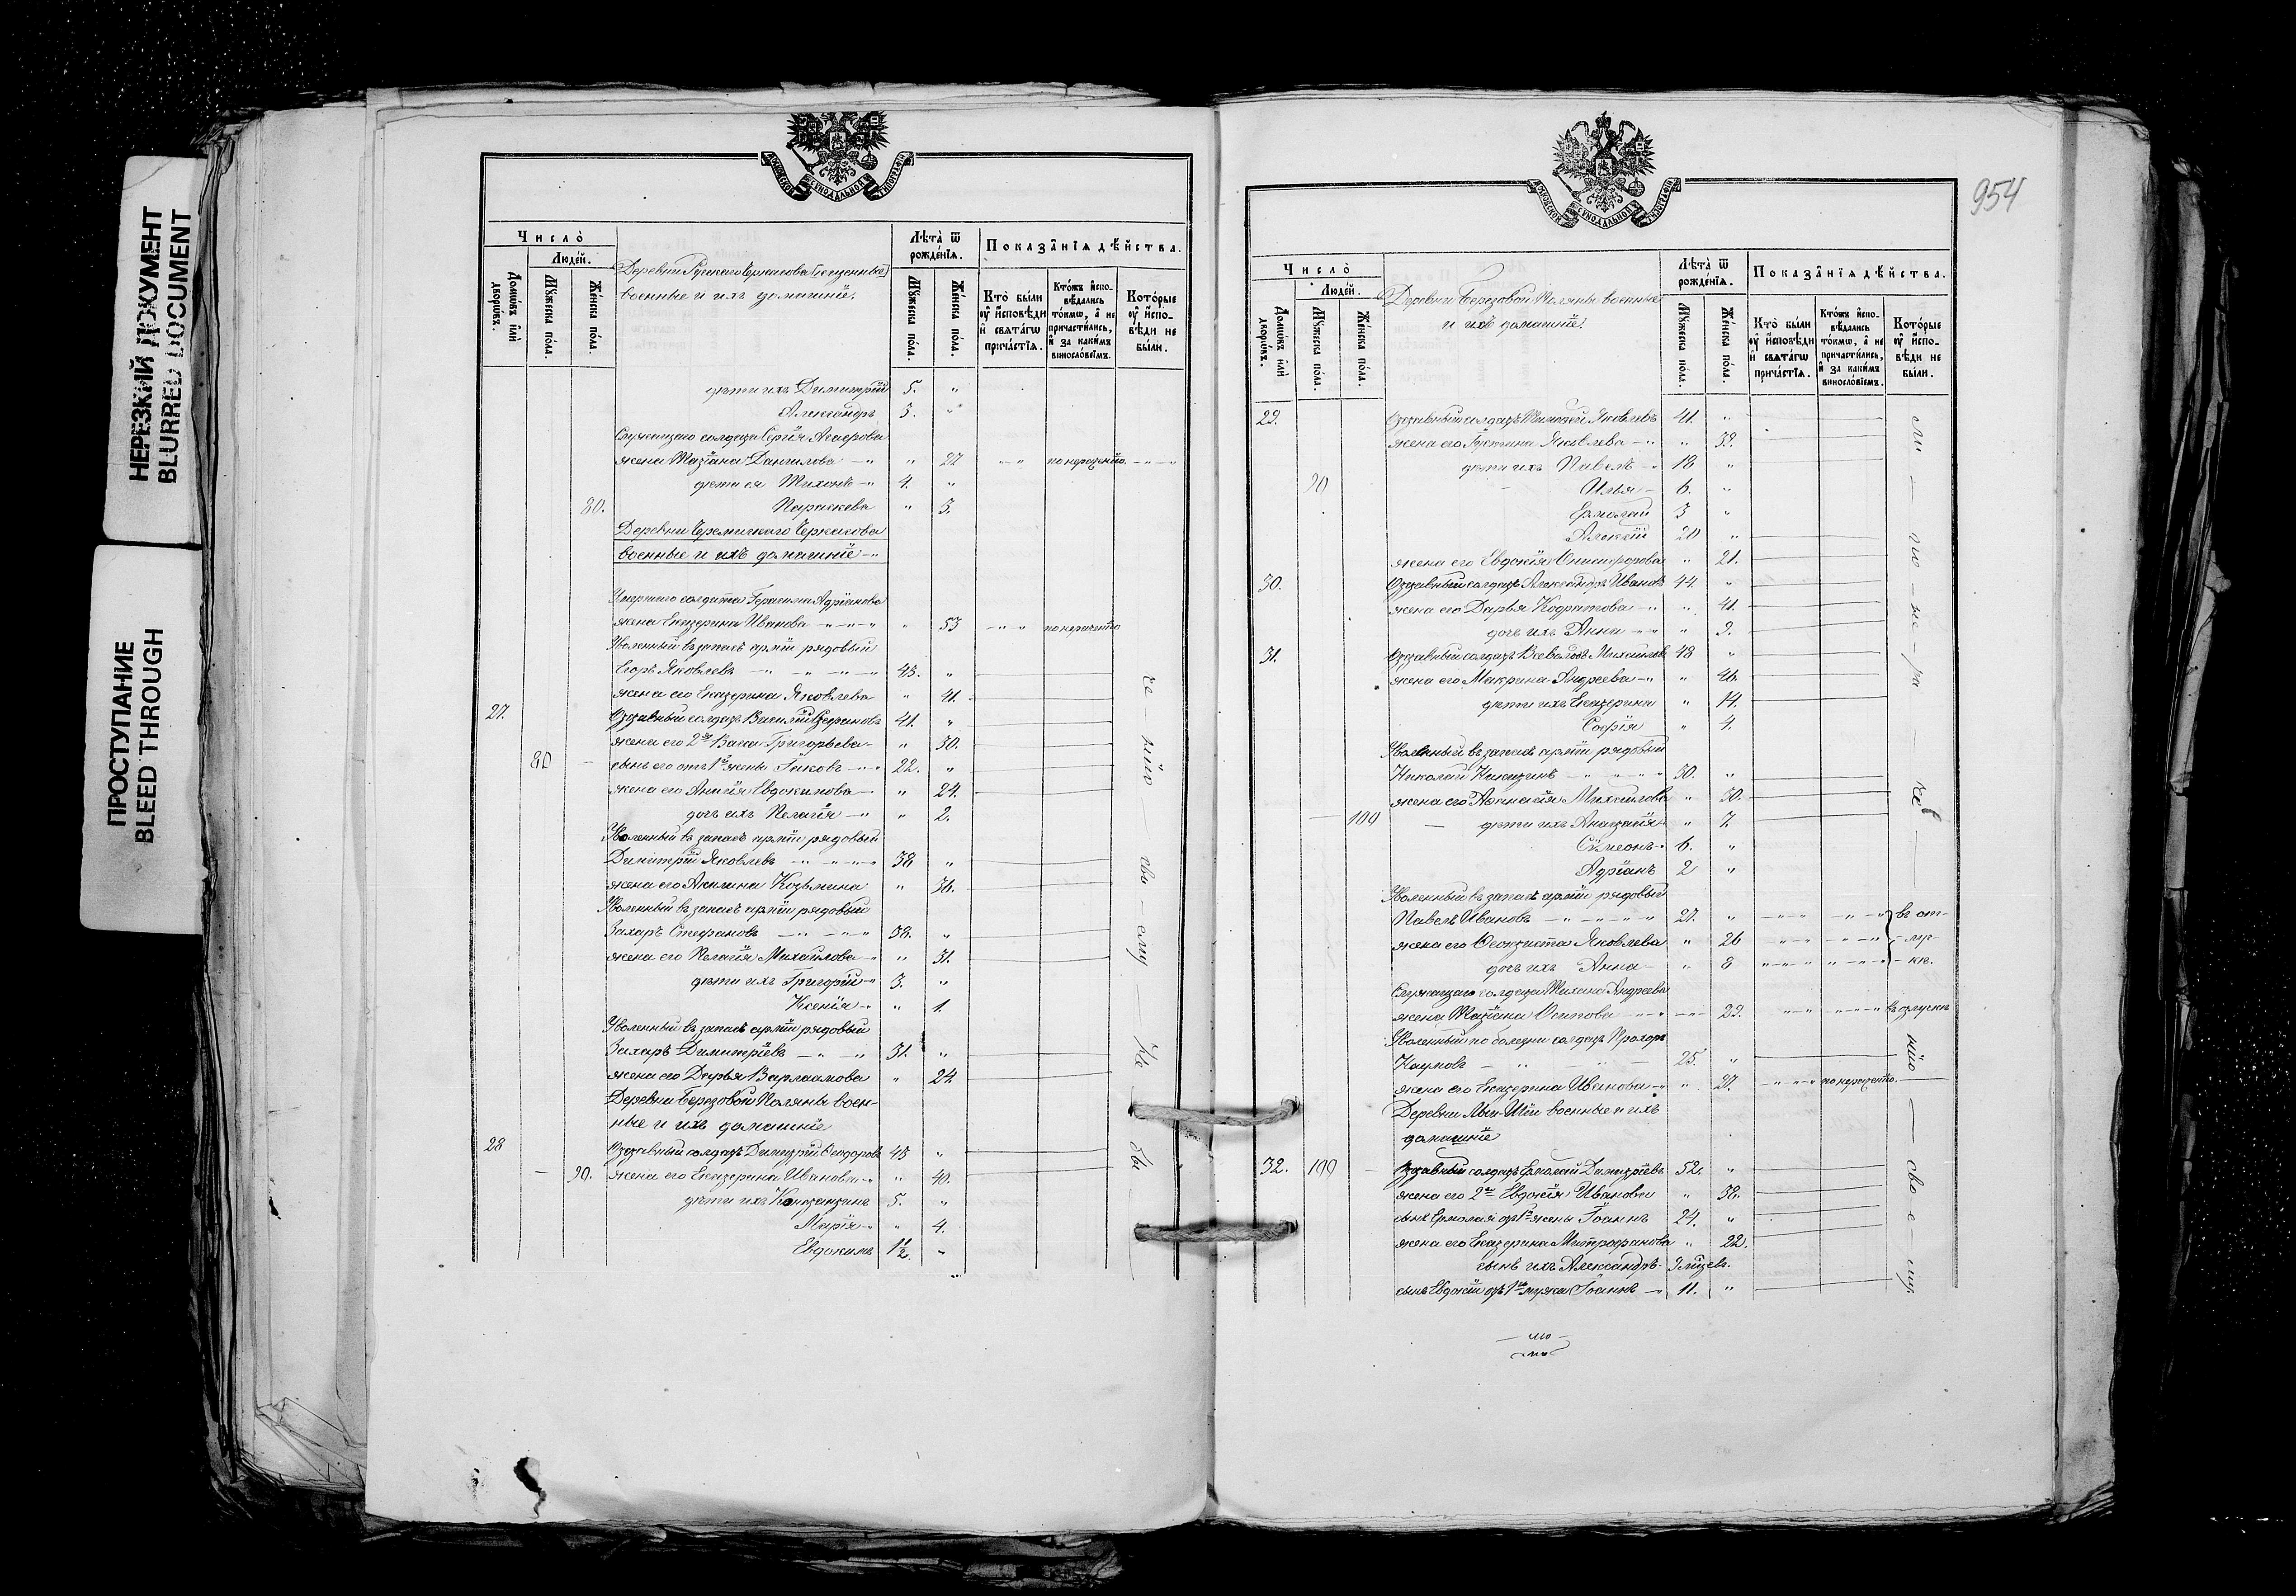 НЕРЕЗКИЙ ДОКУМЕНТ
BLURRED DOCUMENT
ПРОСТУПАНИЕ
BLEED THROUGH
МОСКОВСКОЙ СѴНОДАЛЬНОЙ ТИПОГРАФІИ
Число̀
Людей.
Домѡвъ или дворѡвъ.
Мꙋжеска пола.
Женска пола.
Деревни Русскаго Черкасова
военные и ихъ домашніе.
Лѣта̀ ѿ рожденїѧ.
Мꙋжеска пола.
Женска пола.
Показанїѧ дѣйства.
Кто̀ были ᲂу҆ и҆сповѣди и҆ свѧтагѡ причастїѧ.
Ктожъ и҆споведались токмѡ, а҆ не причастились, и҆ за какимъ винословїемъ.
Которые ᲂу҆ и҆сповѣди не были.
дѣти ихъ Димитрій 5. "
Александръ 3. "
Служащаго солдата Сергія
жена Татіана Данилова " 27 " " по нераденію
дѣти ея Тихонъ 4. "
80. Параскева " 3.
Деревни Черемискаго Черкасова
военные и ихъ домашніе
Умершаго солдата Герасима Адріанова
жена Екатерина Иванова " 53 по нераденію
Уволенный въ запасъ арміи рядовый
Егоръ Яковлевъ 45. "
жена его Екатерина Яковлева " 41.
27. Отставный солдатъ Василій Стефановъ 41. "
жена его 2я Васса Григорьева " 30.
80 сынъ его отъ 1й жены Іаковъ 22. "
жена его Анисія Евдокимова " 24.
дочь ихъ Пелагія " 2.
Уволенный въ запасъ арміи рядовый
Димитрій Яковлевъ 38 "
жена его Акилина Козьмина " 36.
Уволенный въ запасъ арміи рядовый
Захаръ Стефановъ 38. "
жена его Пелагія Михайлова " 31.
дѣти ихъ Григорій 3. "
Ксенія " 1.
Уволенный въ запасъ арміи рядовый
Захаръ Димитріевъ 31. "
жена его Дарья Варлаамова " 24
Деревни Березовой Поляны воен-
ные и ихъ домашніе
28 Отставный солдатъ Димитрій Ѳеодоровъ 45 "
90. жена его Екатерина Иванова " 40.
дѣти ихъ Константинъ 5. "
Марія " 4.
Евдокимъ 1½ "
не бы
954
МОСКОВСКОЙ СѴНОДАЛЬНОЙ ТИПОГРАФІИ
Число̀
Людей.
Домѡвъ или дворѡвъ.
Мꙋжеска пола.
Женска пола.
Деревни Березовой Поляны военные
и ихъ домашніе.
Лѣта̀ ѿ рожденїѧ.
Мꙋжеска пола.
Женска пола.
Показанїѧ дѣйства.
Кто̀ были ᲂу҆ и҆сповѣди и҆ свѧтагѡ причастїѧ.
Ктожъ и҆споведались токмѡ, а҆ не причастились, и҆ за какимъ винословїемъ.
Которые ᲂу҆ и҆сповѣди не были.
29. Отставный солдатъ Тимоѳей Яковлевъ 41. "
жена его Іустина Яковлева " 39.
дѣти ихъ Павелъ 18 "
90 Илья 6. "
Ермолай 3 "
Алексій 20 "
жена его Евдокія Онисифорова " 21.
30. Отставный солдатъ Александръ Ивановъ 44. "
жена его Дарья Кодратова " 41.
дочь ихъ Анна " 9.
31. Отставный солдатъ Михаиловъ 48 "
жена его Макрина Андреева " 46.
дѣти ихъ Екатерина " 14.
Софія " 4.
Уволенный въ запасъ арміи рядовый
Николай Никитинъ 30. "
жена его Аѳанасія Михаилова " 30.
100 дѣти ихъ Анастасія " 7.
Сѷмеонъ 6. "
Адріанъ 2 "
Уволенный въ запасъ арміи рядовый
Павелъ Ивановъ 27. " въ от-
жена его Ѳеоктиста Яковлева " 26 лу-
дочь ихъ Анна " 8 кѣ.
Служащаго солдата Тихона Андреева
жена Татіана Осипова 29. въ отлучкѣ
Уволенный по болезни солдатъ Прохоръ
Наумовъ 25. "
жена его Екатерина Иванова " 27. по нераденію
военные и ихъ
домашніе
32. 100 Отставный солдатъ Ермолай Димитріевъ 52. "
жена его 2я Евдокія Иванова " 38.
сынъ Ермолая отъ 1й жены Іоаннъ 24. "
жена его Екатерина Митрофанова " 22.
сынъ ихъ Александръ
сынъ Евдокіи отъ 1го мужа Іоаннъ 11. "
ли по не ра
нію сво е му